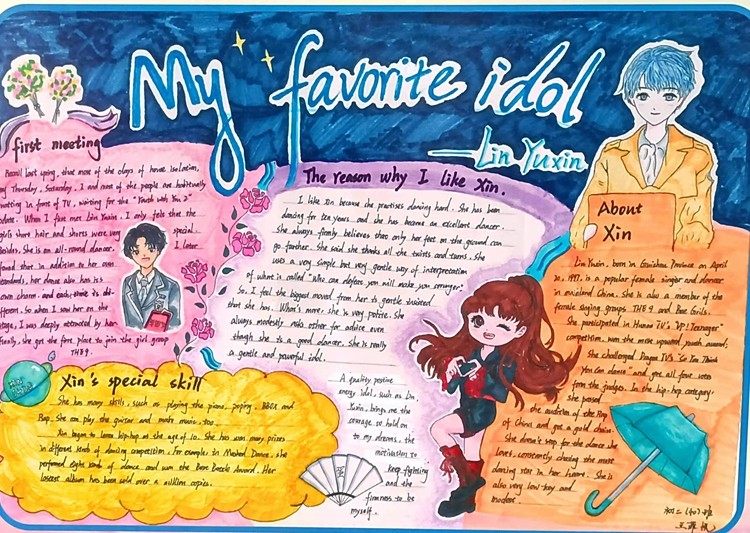 My favorite idol
—Lin Yuxin
first meeting
Recall last spring, that most of the days of home isolation,
Thursday, Saturday, I and most of the people are habitually
waiting in front of TV, waiting for the "Youth With You 2"
When I first met Lin Yuxin, I only felt that the
girl's short hair and shorts were very special.
Besides, She is an all-round dancer. I later
found that in addition to her own
standards, her dance also has its
own charm, and each time is
So when I saw her on the
stage, I was deeply attracted by her.
Finally, she got the first place to join the girl group
THE9.
The reason why I like Xin.
I like Xin because she practises dancing hard. She has been
dancing for ten years, and she has become an excellent dancer.
She always firmly believes that only her feet on the ground can
go farther. She said she thanks all the twists and turns. She
uses a very simple but very gentle way of interpretation
of what is called "Who can defeat you will make you stronger."
So, I feel the biggest moved from her is gentle
that she has. What's more, she is very polite. She
always modestly asks other for advice even
though she is a good dancer. She is really
a gentle and powerful idol.
A quality positive
energy idol, such as Lin
Yuxin, brings me the
courage to hold on
to my dreams, the
motivation to
keep fighting
and the
firmness to be
myself.
About
Xin
Lin Yuxin, born in Guizhou Province on April
1997, is a popular female singer and dancer
in mainland China. She is also a member of the
female singing groups THE9 and Bae Girls.
She participated in Hunan TV's "VP! Teenager"
competition, won the most upward youth award;
She challenged Dragon TV's "So You Think
You Can Dance" and got all four votes
from the judges. In the hip-hop category,
she passed
the audition of the Rap
of China and got a gold chain.
She doesn't stop for the dance she
loves, constantly chasing the most
dazzling star in her heart. She is
also very low-key and
modest.
Xin's special skill
She has many skills, such as playing the piano, poping, BBOX and
Rap. She can play the guitar and make music, too.
Xin began to learn hip-hop at the age of 10. She has won many prizes
in different kinds of dancing competition. For example, in Mashed Dance, she
performed eight kinds of dance and won the Dance Battle Award. Her
album has been sold over a million copies.
初二(11)班